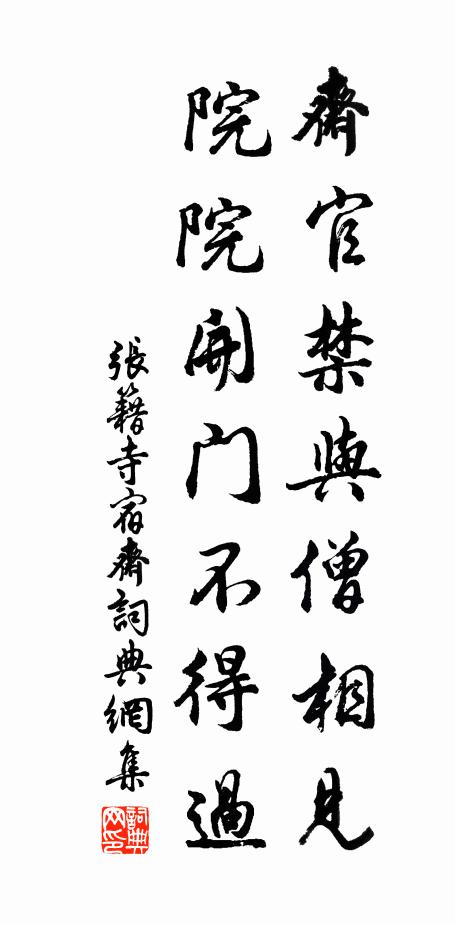 齋官禁與僧相見
院院開门不得過
張籍寺宿齋詞典網集
詞典
网印